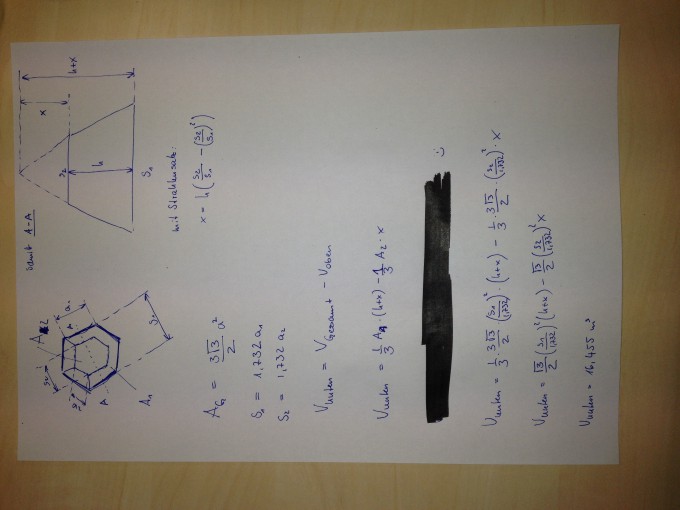 Schnitt A-A
h+x
x
S₂
h
S₁
A₂
a₁
A
A
S₂
S₁
A₁
mit Strahlensatz:
x = h (S₂/S₁ − (S₂/S₁)²)
A_G = 3√3/2 a²
S₁ = 1,732 a₁
S₂ = 1,732 a₂
V_unten = V_Gesamt − V_oben
V_unten = 1/3 A₁ · (h+x) − 1/3 A₂ · x
:)
V_unten = 1/3 · 3√3/2 · (S₁/1,732)² · (h+x) − 1/3 · 3√3/2 · (S₂/1,732)² · x
V_unten = √3/2 (S₁/1,732)² (h+x) − √3/2 (S₂/1,732)² x
V_unten = 16,455 m³